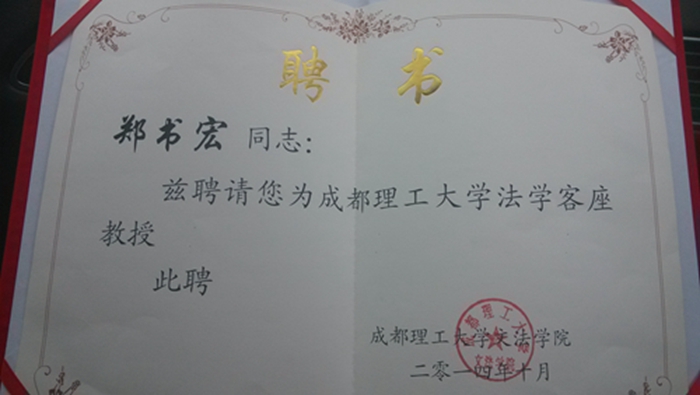 聘书
郑书宏 同志：
兹聘请您为成都理工大学法学客座
教授
此聘
成都理工大学文法学院
二零一四年十月